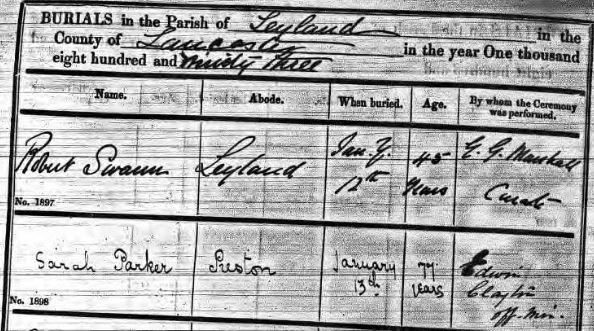 BURIALS in the Parish of Leyland in the
County of Lancaster in the year One thousand
eight hundred and ninety three
Name. Abode. When buried. Age. By whom the Ceremony was performed.
Robert Swann Leyland Jan.y. 12th 45 Years E. G. Marshall Curate
No. 1897
Sarah Parker Preston January 13th 77 years Edwin Clayton off. Min.
No. 1898